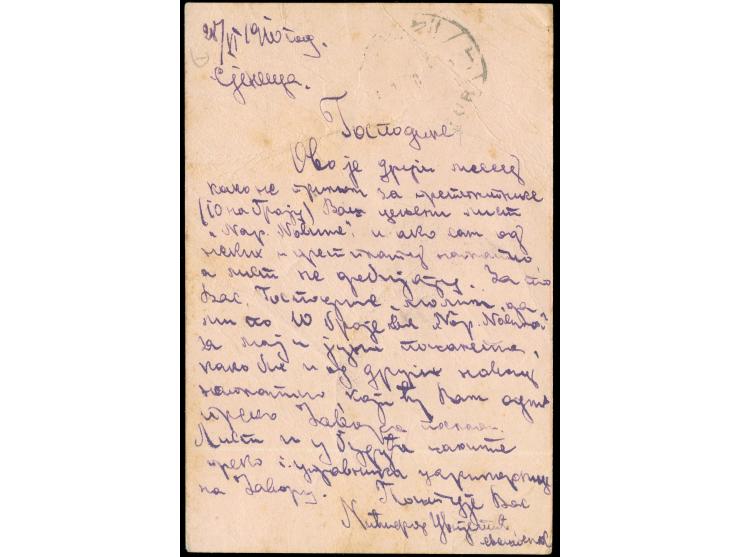 28/VI 1910 год.
Сјеница.
Господине
Ово је други месец
како не примам за претплатнике
(10 на броју) Ваш цењени лист
„Nar. Novine", и ако сам од
неких претплату наплатио
а лист не добијају. За то
Вас, Господине, молим, да
ми по 10 броје ва „Nar. Novina"
за мај и јуни пошаљете,
како би и од других новац
наплатио који ћу Вам одма
преко Јавора послати.
Лист и у будуће шаљите
преко г. управника царинарнице
на Јавору. Поштује Вас
Никифор
свештеник